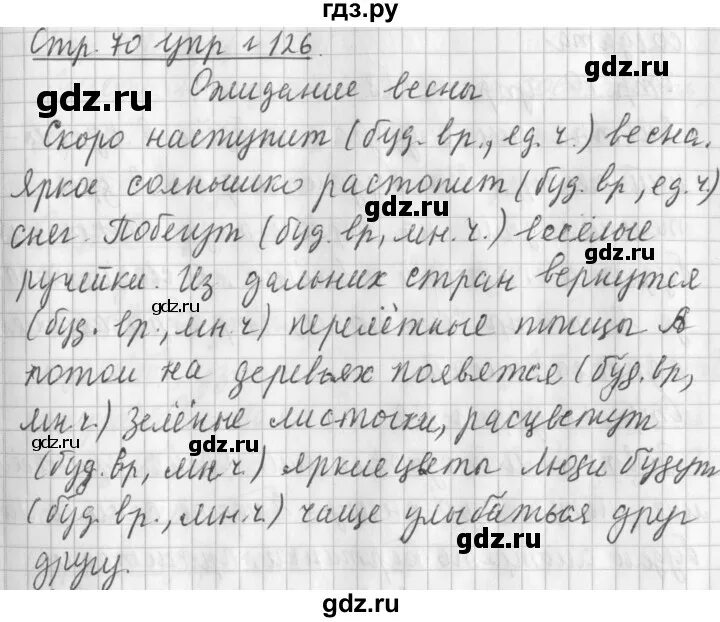 гдз.ру
Стр. 70 упр г 126.
gdz.ru
gdz.ru
Ожидание весны
gdz.ru
Скоро наступит (буд. вр., ед. ч.) весна.
Яркое солнышко растопит (буд. вр, ед. ч)
gdz.ru
снег. Побегут (буд. вр, мн. ч.) весёлые
ручейки. Из дальних стран вернутся
gdz.ru
(буд. вр., мн. ч) перелётные птицы А
потом на деревьях появятся (буд. вр,
мн. ч.) зелёные листочки, расцветут
gdz.ru
gdz.ru
(буд. вр, мн. ч.) яркие цветы Люди будут
(буд. вр., мн. ч.) чаще улыбаться друг
gdz.ru
другу.
gdz.ru